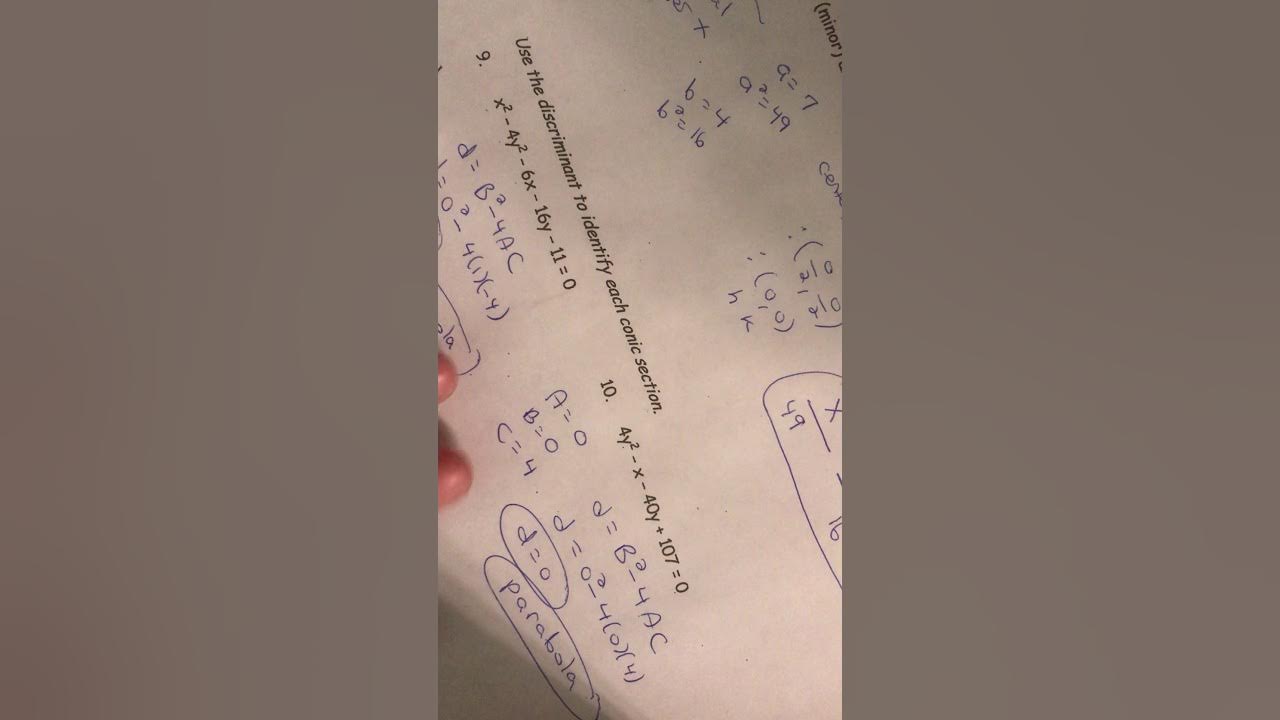 (minor)
a = 7
a² = 49
b = 4
b² = 16
: (0/2, 0/2)
: (0, 0)
h k
x
49
16
Use the discriminant to identify each conic section.
9. x² - 4y² - 6x - 16y - 11 = 0
d = B² - 4AC
= 0² - 4(1)(-4)
10. 4y² - x - 40y + 107 = 0
A = 0
B = 0
C = 4
d = B² - 4AC
d = 0² - 4(0)(4)
d = 0
parabola